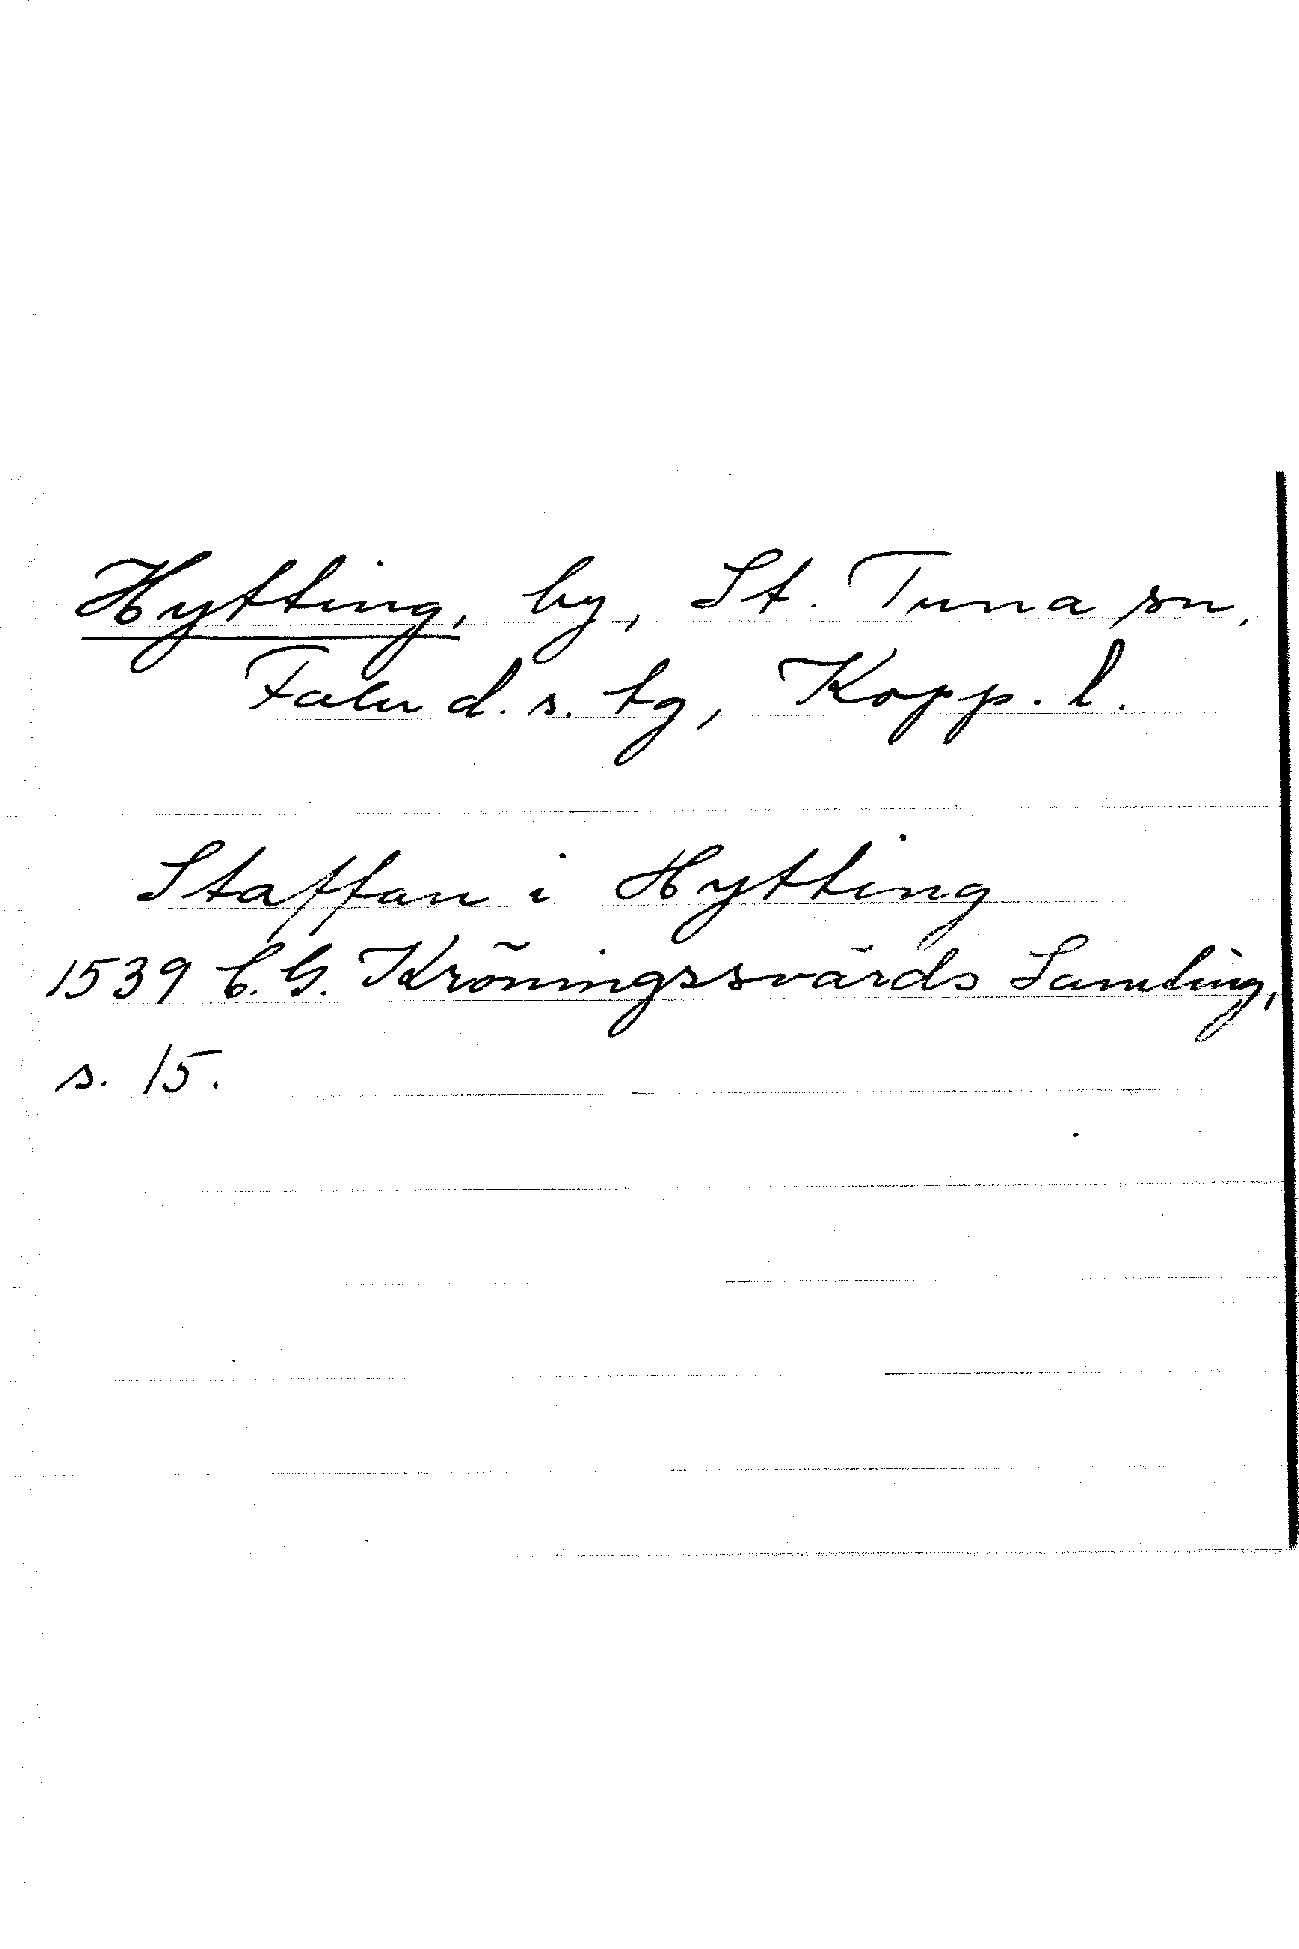 Hytting, by, St. Tuna sn,
Falu d. s. tg, Kopp. l.
Staffan i Hytting
1539 C. G. Kröningssvärds Samling,
s. 15.